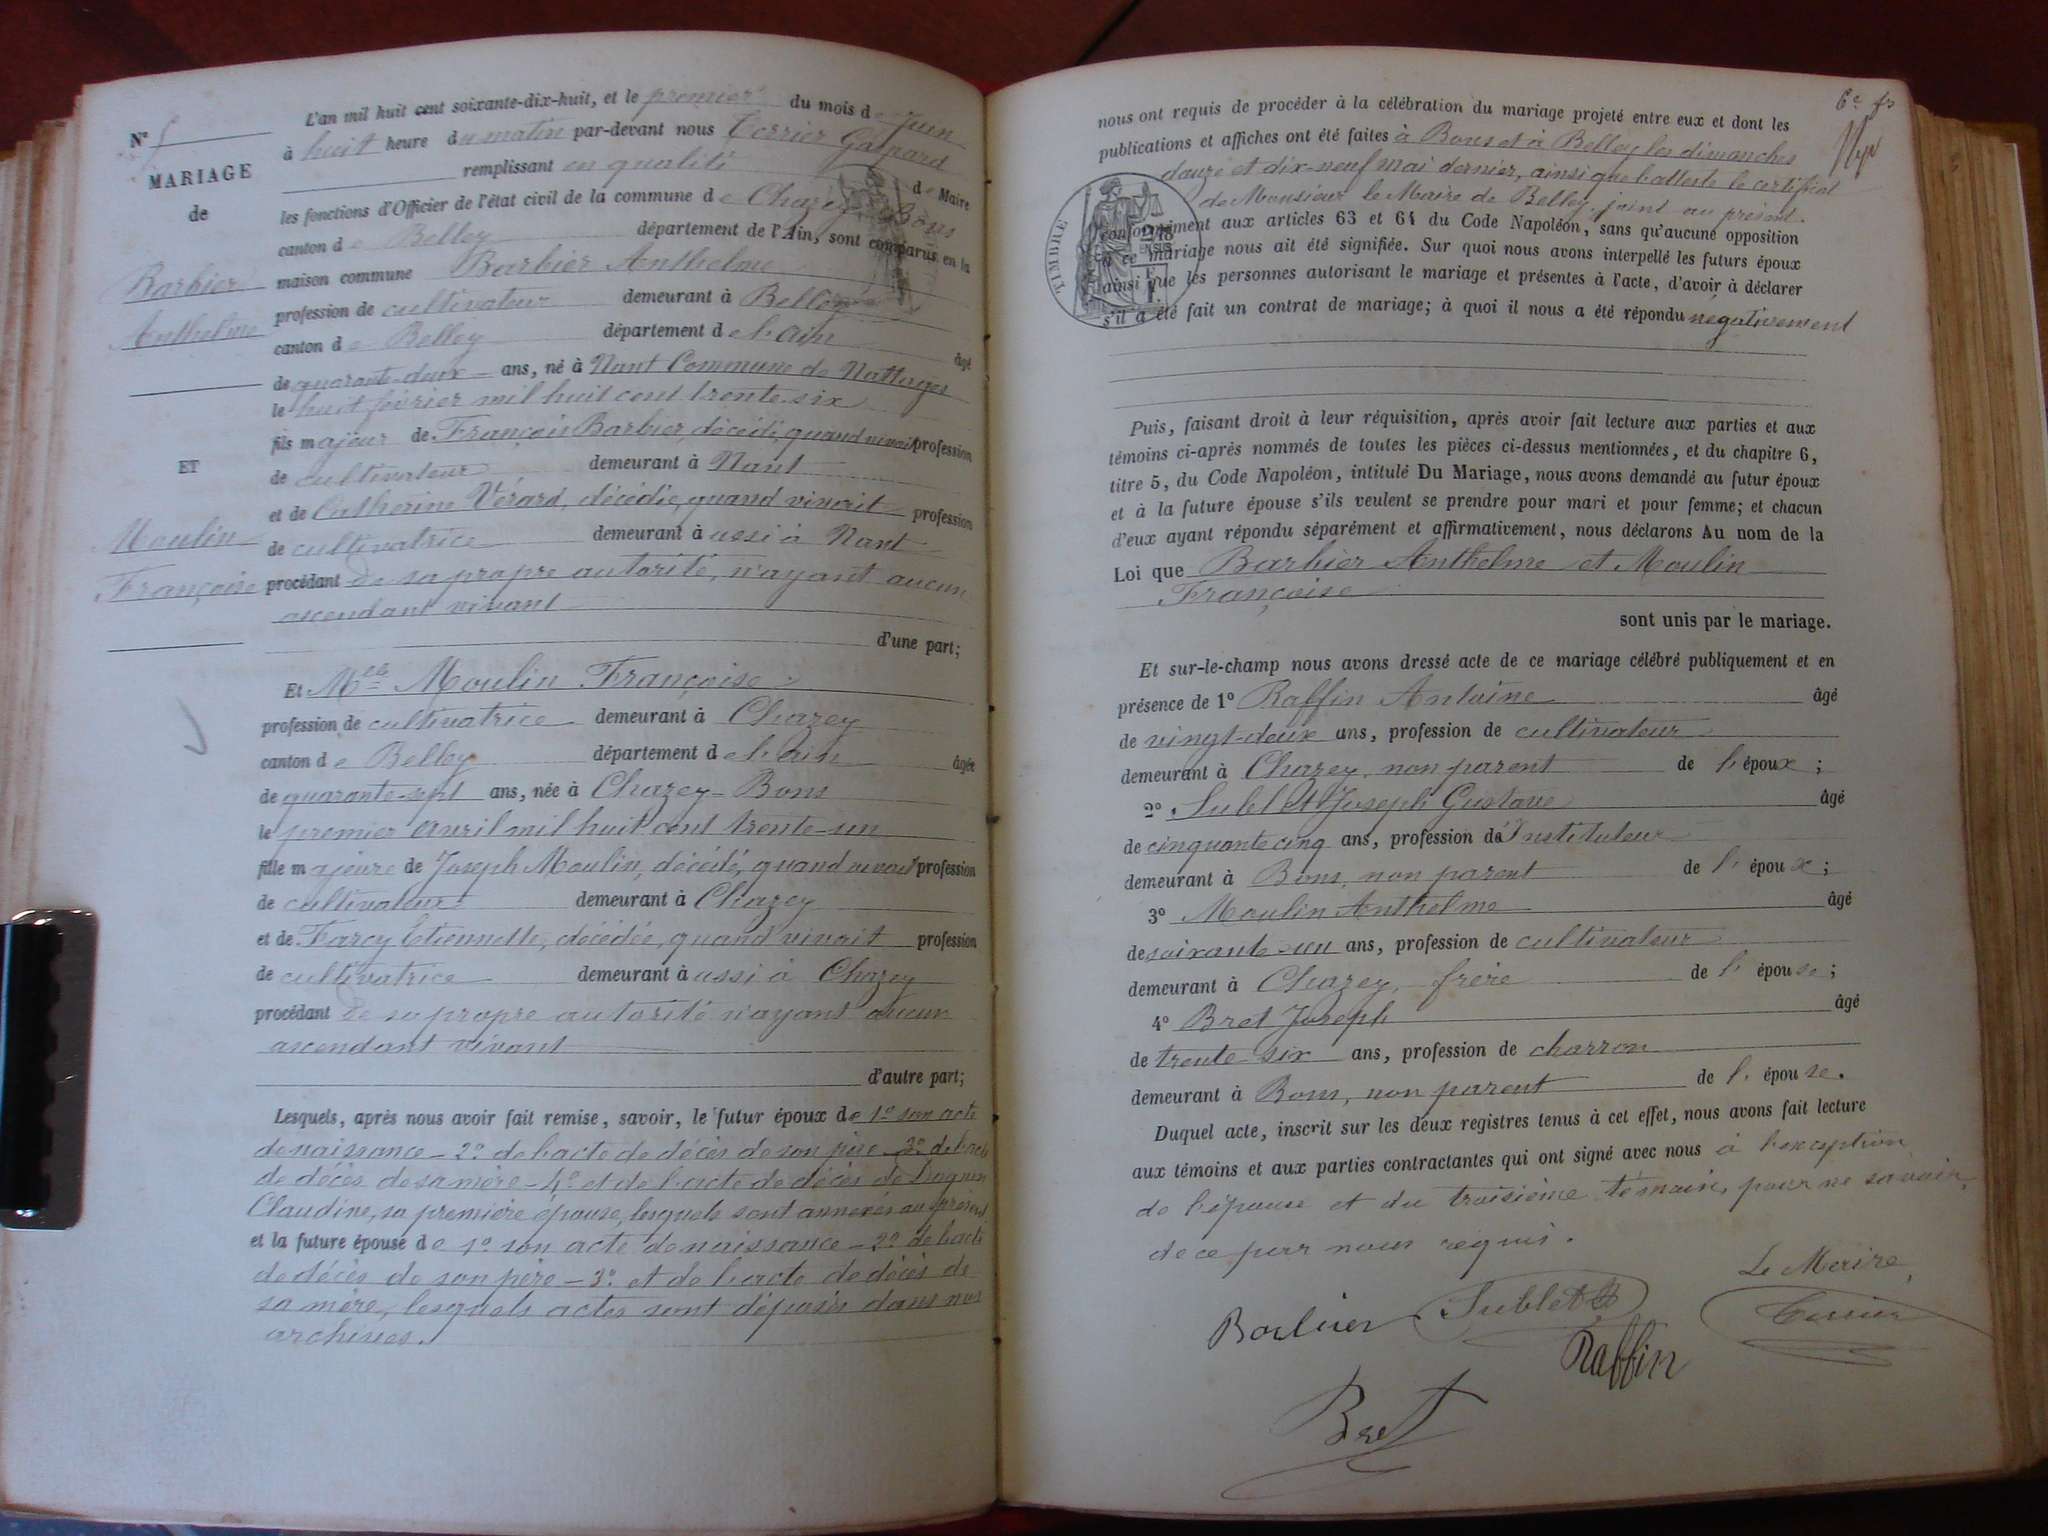 L'an mil huit cent soixante-dix-huit, et le premier du mois de Juin
à huit heure du matin par-devant nous Terrier Gaspard
remplissant en qualité de Maire
les fonctions d'Officier de l'état civil de la commune de Chazey Bons
canton de Belley département de l'Ain, sont comparus en la
maison commune Barbier Anthelme
profession de cultivateur demeurant à Belley
canton de Belley département de l'ain âgé
de quarante-deux ans, né à Nant Commune de Nattages
le huit février mil huit cent trente-six
fils majeur de François Barbier, décédé, quand vivait profession
de cultivateur demeurant à Nant
et de Catherine Vérard, décédée, quand vivait profession
de cultivatrice demeurant à ussi à Nant
procédant de sa propre autorité, n'ayant aucun
ascendant vivant
d'une part;
N°
MARIAGE
de
Barbier
Anthelme
ET
Moulin
Françoise
Et Mlle Moulin Françoise
profession de cultivatrice demeurant à Chazey
canton de Belley département de l'ain âgée
de quarante-sept ans, née à Chazey-Bons
le premier avril mil huit cent trente-un
fille majeure de Joseph Moulin, décédé, quand vivait profession
de cultivateur demeurant à Chazey
et de Farcy Etiennette, décédée, quand vivait profession
de cultivatrice demeurant à ussi à Chazey
procédant de sa propre autorité n'ayant aucun
ascendant vivant
d'autre part;
Lesquels, après nous avoir fait remise, savoir, le futur époux de 1° son acte
de naissance - 2° de l'acte de décès de son père - 3° de l'acte
de décès de sa mère - 4° et de l'acte de décès de
Claudine, sa première épouse, lesquels sont annexés au présent
et la future épouse de 1° son acte de naissance - 2° de l'acte
de décès de son père - 3° et de l'acte de décès de
sa mère, lesquels actes sont déposés dans nos
archives.
6e
nous ont requis de procéder à la célébration du mariage projeté entre eux et dont les
publications et affiches ont été faites à Bons et à Belley les dimanches
douze et dix-neuf mai dernier, ainsi que l'atteste le certificat
de Monsieur le Maire de Belley, joint au présent.
conformément aux articles 63 et 64 du Code Napoléon, sans qu'aucune opposition
à ce mariage nous ait été signifiée. Sur quoi nous avons interpellé les futurs époux
ainsi que les personnes autorisant le mariage et présentes à l'acte, d'avoir à déclarer
s'il a été fait un contrat de mariage; à quoi il nous a été répondu négativement
TIMBRE
Puis, faisant droit à leur réquisition, après avoir fait lecture aux parties et aux
témoins ci-après nommés de toutes les pièces ci-dessus mentionnées, et du chapitre 6,
titre 5, du Code Napoléon, intitulé Du Mariage, nous avons demandé au futur époux
et à la future épouse s'ils veulent se prendre pour mari et pour femme; et chacun
d'eux ayant répondu séparément et affirmativement, nous déclarons Au nom de la
Loi que Barbier Anthelme et Moulin
Françoise
sont unis par le mariage.
Et sur-le-champ nous avons dressé acte de ce mariage célébré publiquement et en
présence de 1° Raffin Antoine âgé
de vingt-deux ans, profession de cultivateur
demeurant à Chazey, non parent de l'époux;
2° Sublet Joseph Gustave âgé
de cinquante cinq ans, profession d'Instituteur
demeurant à Bons, non parent de l'époux;
3° Moulin Anthelme âgé
de soixante-un ans, profession de cultivateur
demeurant à Chazey, frère de l'épouse;
4° Bret Joseph âgé
de trente six ans, profession de charron
demeurant à Bons, non parent de l'épouse.
Duquel acte, inscrit sur les deux registres tenus à cet effet, nous avons fait lecture
aux témoins et aux parties contractantes qui ont signé avec nous à l'exception
de l'épouse et du troisième témoin, pour ne savoir,
de ce par nous requis.
Le Maire,
Barbier Sublet Terrier
Raffin
Bret